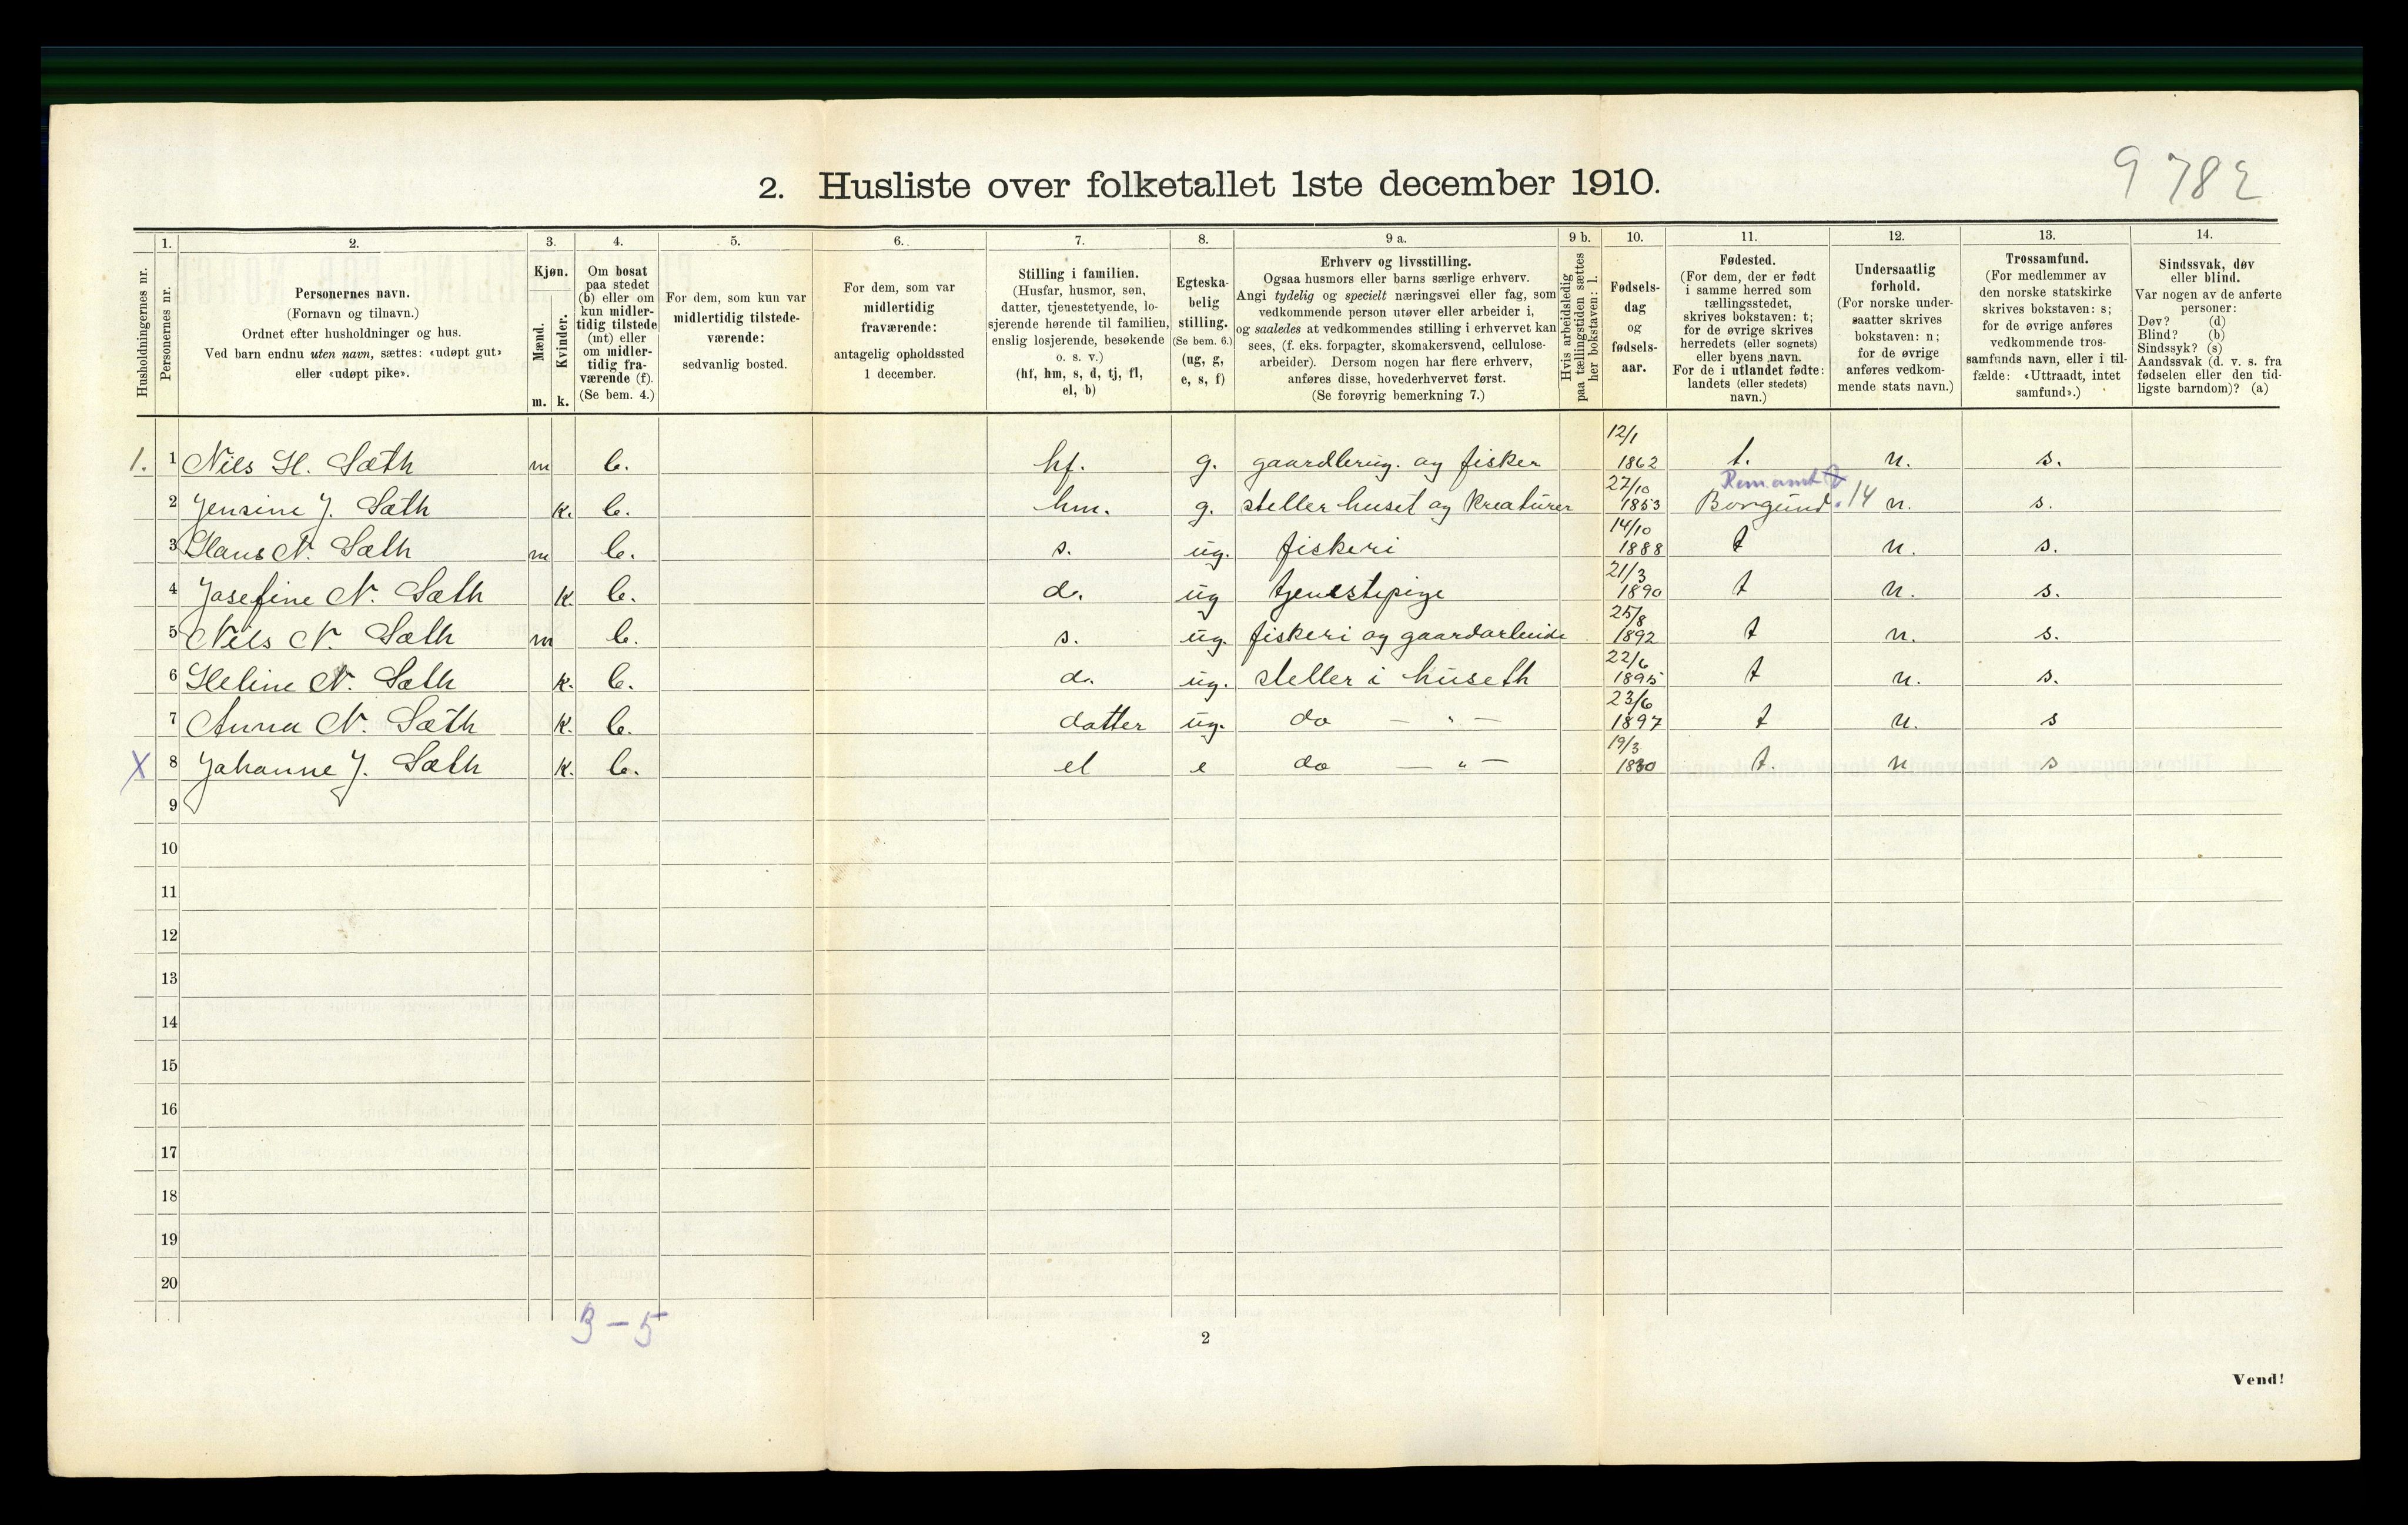 9 782
2. Husliste over folketallet 1ste december 1910.
1. 2. 3. 4. 5. 6. 7. 8. 9 a. 9 b. 10. 11. 12. 13. 14.
Husholdningernes nr.
Personernes nr.
Personernes navn.
(Fornavn og tilnavn.)
Ordnet efter husholdninger og hus.
Ved barn endnu uten navn, sættes: «udøpt gut»
eller «udøpt pike».
Kjøn.
Mænd.
Kvinder.
m. k.
Om bosat
paa stedet
(b) eller om
kun midler-
tidig tilstede
(mt) eller
om midler-
tidig fra-
værende (f).
(Se bem. 4.)
For dem, som kun var
midlertidig tilstede-
værende:
sedvanlig bosted.
For dem, som var
midlertidig
fraværende:
antagelig opholdssted
1 december.
Stilling i familien.
(Husfar, husmor, søn,
datter, tjenestetyende, lo-
sjerende hørende til familien,
enslig losjerende, besøkende
o. s. v.)
(hf, hm, s, d, tj, fl,
el, b)
Egteska-
belig
stilling.
(Se bem. 6.)
(ug, g,
e, s, f)
Erhverv og livsstilling.
Ogsaa husmors eller barns særlige erhverv.
Angi tydelig og specielt næringsvei eller fag, som
vedkommende person utøver eller arbeider i,
og saaledes at vedkommendes stilling i erhvervet kan
sees, (f. eks. forpagter, skomakersvend, cellulose-
arbeider). Dersom nogen har flere erhverv,
anføres disse, hovederhvervet først.
(Se forøvrig bemerkning 7.)
Hvis arbeidsledig
paa tællingstiden sættes
her bokstaven: l.
Fødsels-
dag
og
fødsels-
aar.
Fødested.
(For dem, der er født
i samme herred som
tællingsstedet,
skrives bokstaven: t;
for de øvrige skrives
herredets (eller sognets)
eller byens navn.
For de i utlandet fødte:
landets (eller stedets)
navn.)
Undersaatlig
forhold.
(For norske under-
saatter skrives
bokstaven: n;
for de øvrige
anføres vedkom-
mende stats navn.)
Trossamfund.
(For medlemmer av
den norske statskirke
skrives bokstaven: s;
for de øvrige anføres
vedkommende tros-
samfunds navn, eller i til-
fælde: «Uttraadt, intet
samfund».)
Sindssvak, døv
eller blind.
Var nogen av de anførte
personer:
Døv? (d)
Blind? (b)
Sindssyk? (s)
Aandssvak (d. v. s. fra
fødselen eller den tid-
ligste barndom)? (a)
1. 1 Nils H. Sæth m b. hf. g. gaardbrug. og fisker 12/1 1862 t. n. s.
Romsamt
2 Jensine J. Sæth k. b. hm. g. steller huset og Kreaturer 27/10 1853 Borgund. 14 n. s.
3 Hans N. Sæth m b. s. ug. fiskeri 14/10 1888 t n. s.
4 Josefine N. Sæth k. b. d. ug tjenestepige 21/3 1890 t n. s.
5 Nils N. Sæth m b. s. ug. fiskeri og gaardarbeide 25/8 1892 t n. s.
6 Heline N. Sæth k. b. d. ug. steller i huseth 22/6 1895 t n. s.
7 Anna N. Sæth k. b. datter ug. do — " — 23/6 1897 t n. s
X 8 Johanne J. Sæth k. b. el e do — " — 19/3 1830 t. n s
9
10
11
12
13
14
15
16
17
18
19
20
3 – 5
2
Vend!